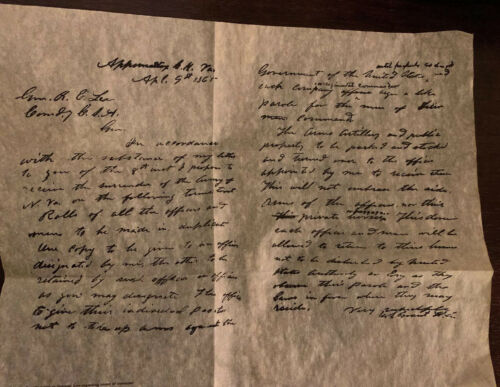 Appomattox C. H. Va.
Apl. 9th 1865
Gen. R. E. Lee
Comdg C. S. A.
Gen.
In accordance
with the substance of my letter
to you of the 8th inst I propose to
receive the surrender of the Army of
N. Va on the following terms towit
Rolls of all the officers and
men to be made in duplicate
One copy to be given to an officer
designated by me, the other to be
retained by such officer or officers
as you may designate. The officers
to give their individual paroles
not to take up arms against the
until properly
Government of the United States, and
each company officer sign a like
parole for the men of their
commands
The Arms Artillery and public
property to be parked and stacked
and turned over to the officer
appointed by me to receive them
This will not embrace the side
arms of the officers, nor their
private horses This done
each officer and man will be
allowed to return to their homes
not to be disturbed by United
States Authority so long as they
observe their parole and the
laws in force where they may
reside.
Very